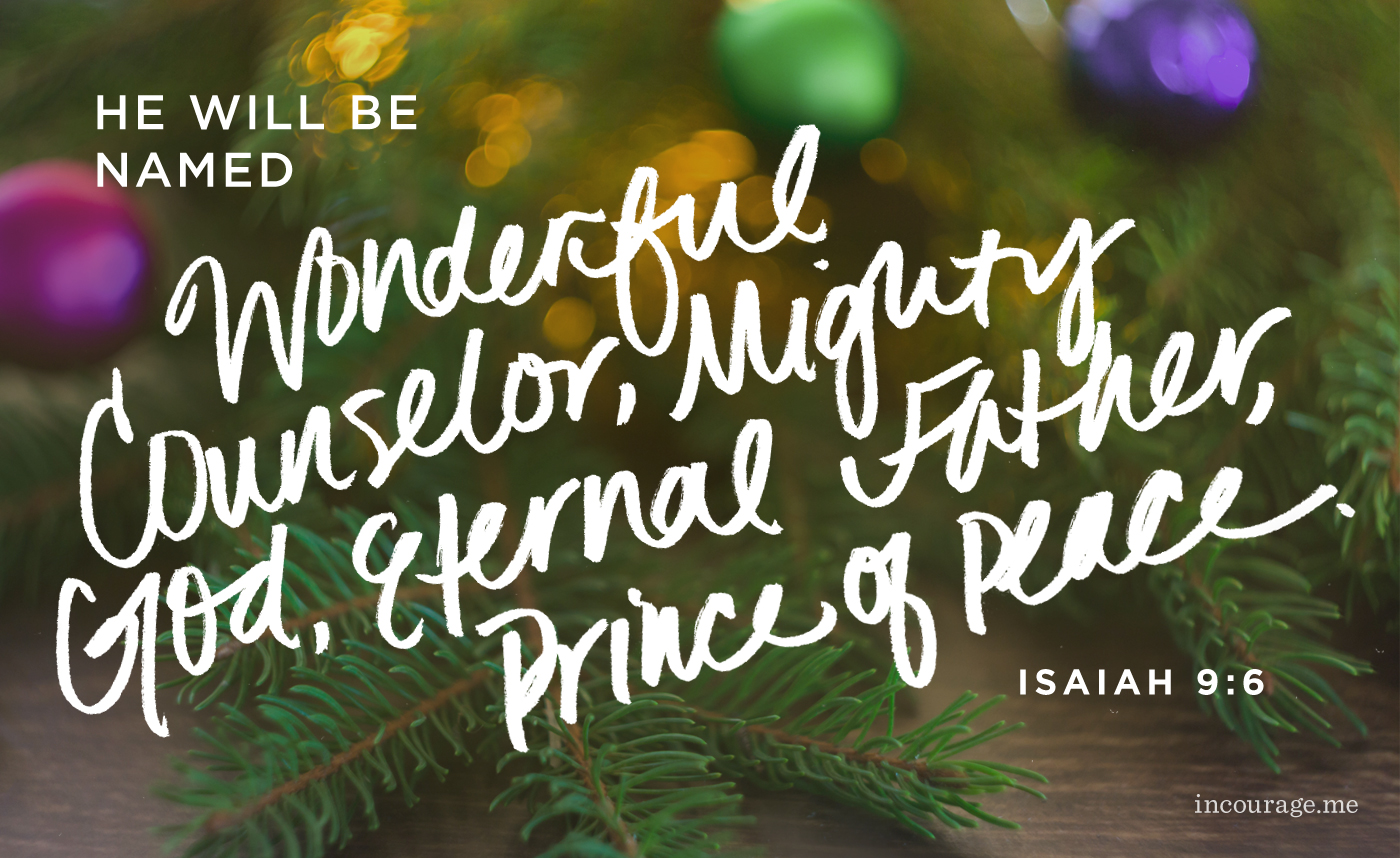 HE WILL BE
NAMED
Wonderful
Counselor, Mighty
God, Eternal Father,
Prince of Peace.
ISAIAH 9:6
incourage.me